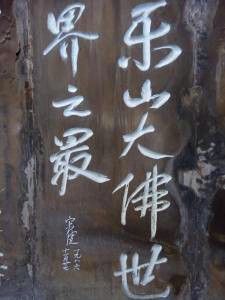 乐山大佛世
界之最